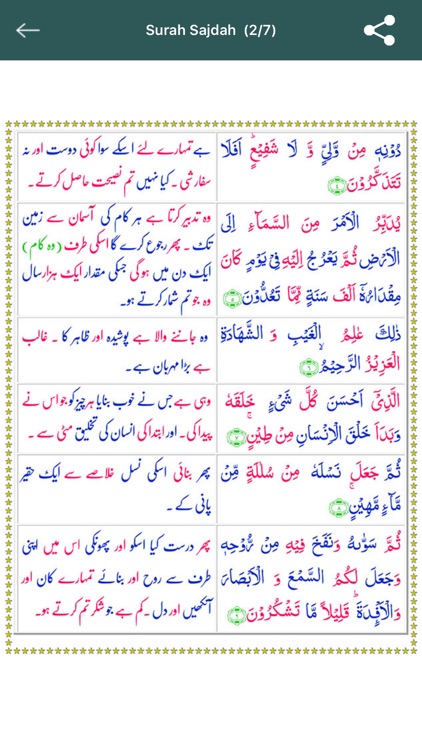 Surah Sajdah (2/7)
دُوْنِهٖ مِنْ وَّلِيٍّ وَّ لَا شَفِيْعٍ ؕ اَفَلَا
تَتَذَكَّرُوْنَ ﴿۴﴾
ہے تمہارے لئے اسکے سوا کوئی دوست اور نہ
سفارشی ۔ کیا نہیں تم نصیحت حاصل کرتے۔
يُدَبِّرُ الْاَمْرَ مِنَ السَّمَآءِ اِلَى
الْاَرْضِ ثُمَّ يَعْرُجُ اِلَيْهِ فِيْ يَوْمٍ كَانَ
مِقْدَارُهٗۤ اَلْفَ سَنَةٍ مِّمَّا تَعُدُّوْنَ ﴿۵﴾
وہ تدبیر کرتا ہے ہر کام کی آسمان سے زمین
تک ۔ پھر رجوع کرے گا اسکی طرف (وہ کام)
ایک دن میں ہوگی جسکی مقدار ایک ہزار سال
وہ جو تم شمار کرتے ہو۔
ذٰلِكَ عٰلِمُ الْغَيْبِ وَ الشَّهَادَةِ
الْعَزِيْزُ الرَّحِيْمُ ۙ ﴿۶﴾
وہ جاننے والا ہے پوشیدہ اور ظاہر کا ۔ غالب
ہے بڑا مہربان ہے۔
الَّذِيْۤ اَحْسَنَ كُلَّ شَيْءٍ خَلَقَهٗ
وَبَدَاَ خَلْقَ الْاِنْسَانِ مِنْ طِيْنٍ ۚ ﴿۷﴾
وہی ہے جس نے خوب بنایا ہر چیز کو جو اس نے
پیدا کی۔ اور ابتدا کی انسان کی تخلیق مٹی سے ۔
ثُمَّ جَعَلَ نَسْلَهٗ مِنْ سُلٰلَةٍ مِّنْ
مَّآءٍ مَّهِيْنٍ ۚ ﴿۸﴾
پھر بنائی اسکی نسل خلاصے سے ایک حقیر
پانی کے ۔
ثُمَّ سَوّٰىهُ وَنَفَخَ فِيْهِ مِنْ رُّوْحِهٖ
وَجَعَلَ لَكُمُ السَّمْعَ وَ الْاَبْصَارَ
وَالْاَفْـِٕدَةَ ؕ قَلِيْلًا مَّا تَشْكُرُوْنَ ﴿۹﴾
پھر درست کیا اسکو اور پھونکی اس میں اپنی
طرف سے روح اور بنائے تمہارے کان اور
آنکھیں اور دل ۔ کم ہے جو شکر تم کرتے ہو۔